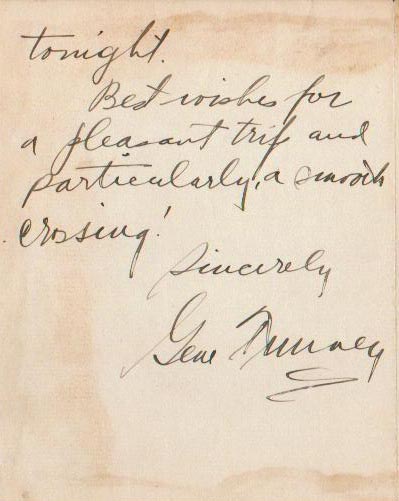 tonight.
Best wishes for
a pleasant trip and
particularly, a smooth
crossing!
Sincerely
Gene Tunney